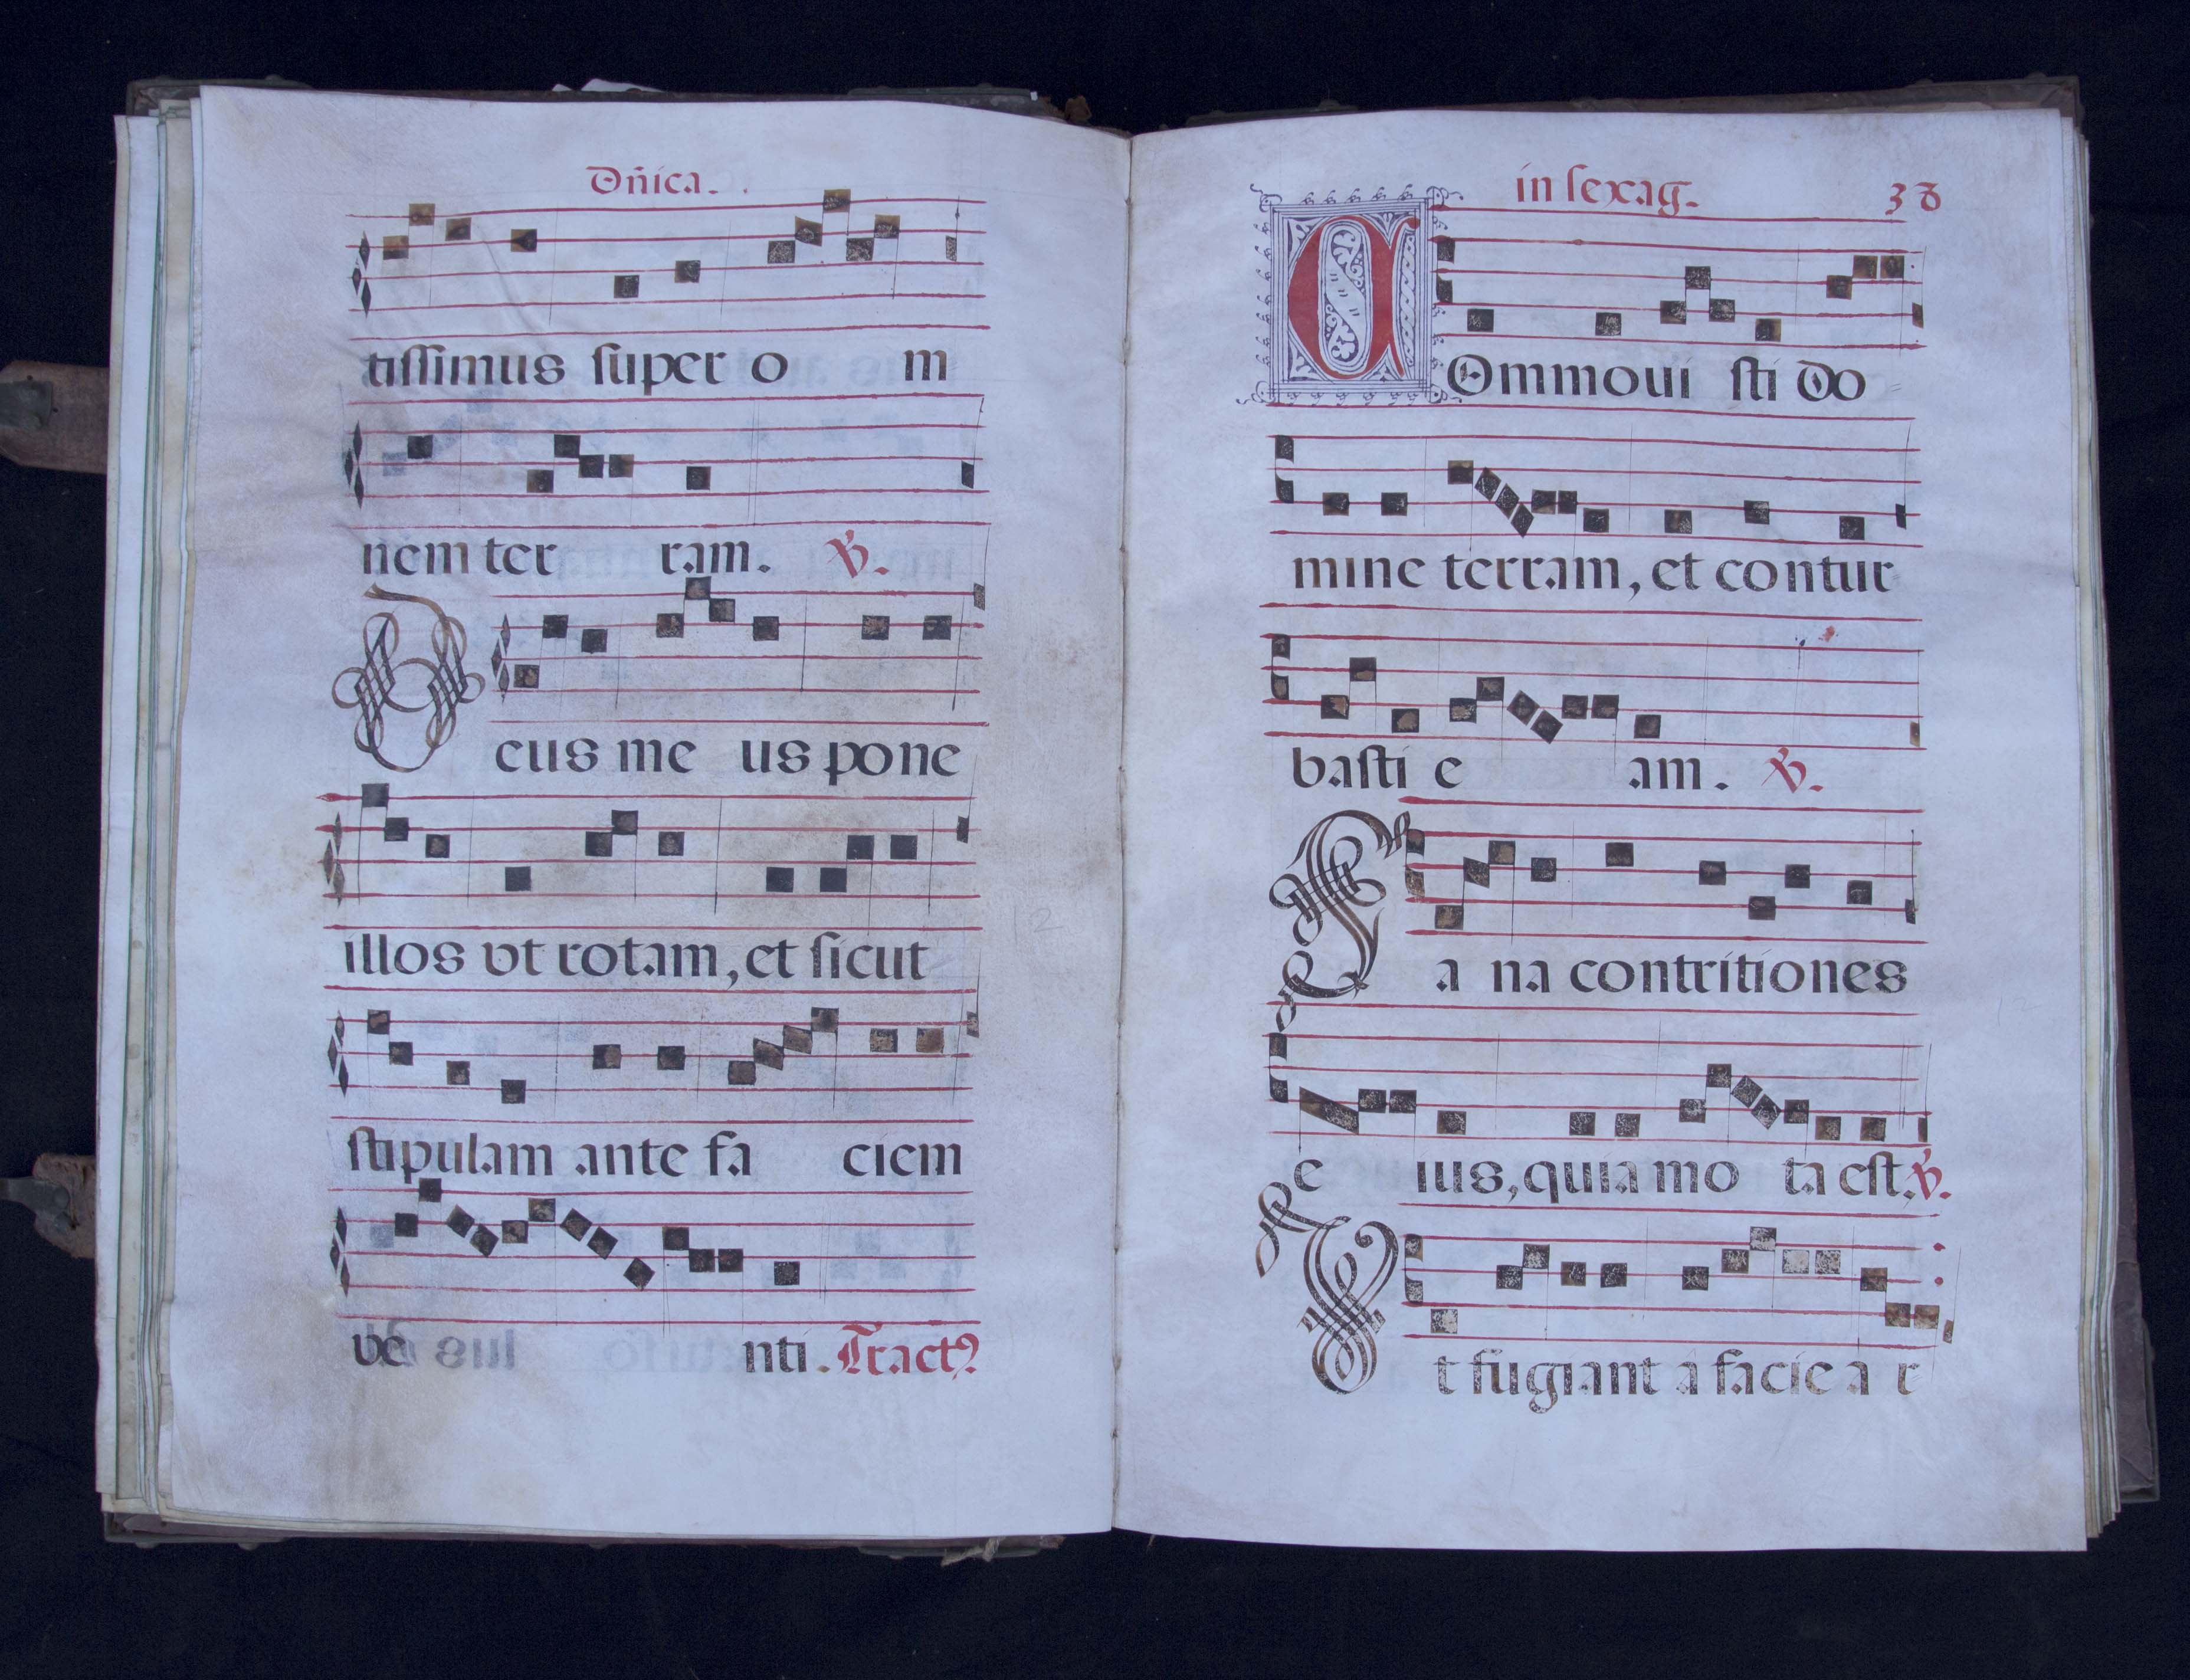 Dñica.
tissimus super o m
nem ter ram. ℣.
Deus me us pone
illos vt rotam, et sicut
stipulam ante fa ciem
ve nti. Tract9
in sexag. 38
COmmoui sti do
mine terram, et contur
basti e am. ℣.
Sa na contritiones
e ius, quia mo ta est. ℣.
Vt fugiant à facie a r